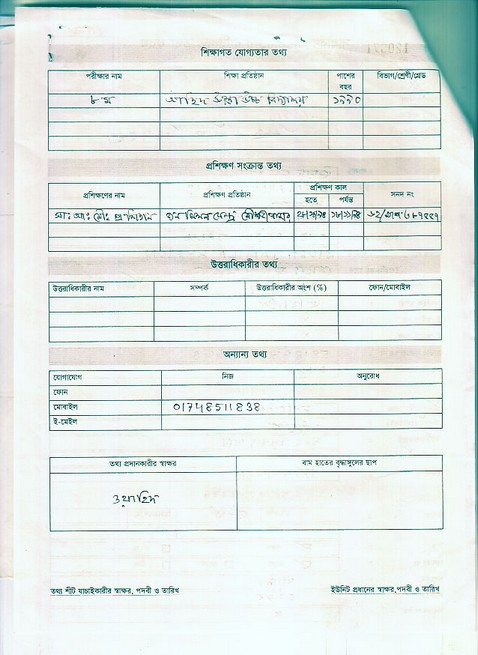 শিক্ষাগত যোগ্যতার তথ্য
পরীক্ষার নাম শিক্ষা প্রতিষ্ঠান পাশের বছর বিভাগ/শ্রেণী/গ্রেড
৮ম উচ্চ বিদ্যালয় ১৯৯০
প্রশিক্ষণ সংক্রান্ত তথ্য
প্রশিক্ষণের নাম প্রশিক্ষণ প্রতিষ্ঠান প্রশিক্ষণ কাল সনদ নং
হতে পর্যন্ত
উত্তরাধিকারীর তথ্য
উত্তরাধিকারীর নাম সম্পর্ক উত্তরাধিকারীর অংশ (%) ফোন/মোবাইল
অন্যান্য তথ্য
যোগাযোগ নিজ অনুবোধ
ফোন
মোবাইল 01748511838
ই-মেইল
তথ্য প্রদানকারীর স্বাক্ষর বাম হাতের বৃদ্ধাঙ্গুলের ছাপ
ওয়াহিদ
তথ্য শীট যাচাইকারীর স্বাক্ষর, পদবী ও তারিখ ইউনিট প্রধানের স্বাক্ষর,পদবী ও তারিখ